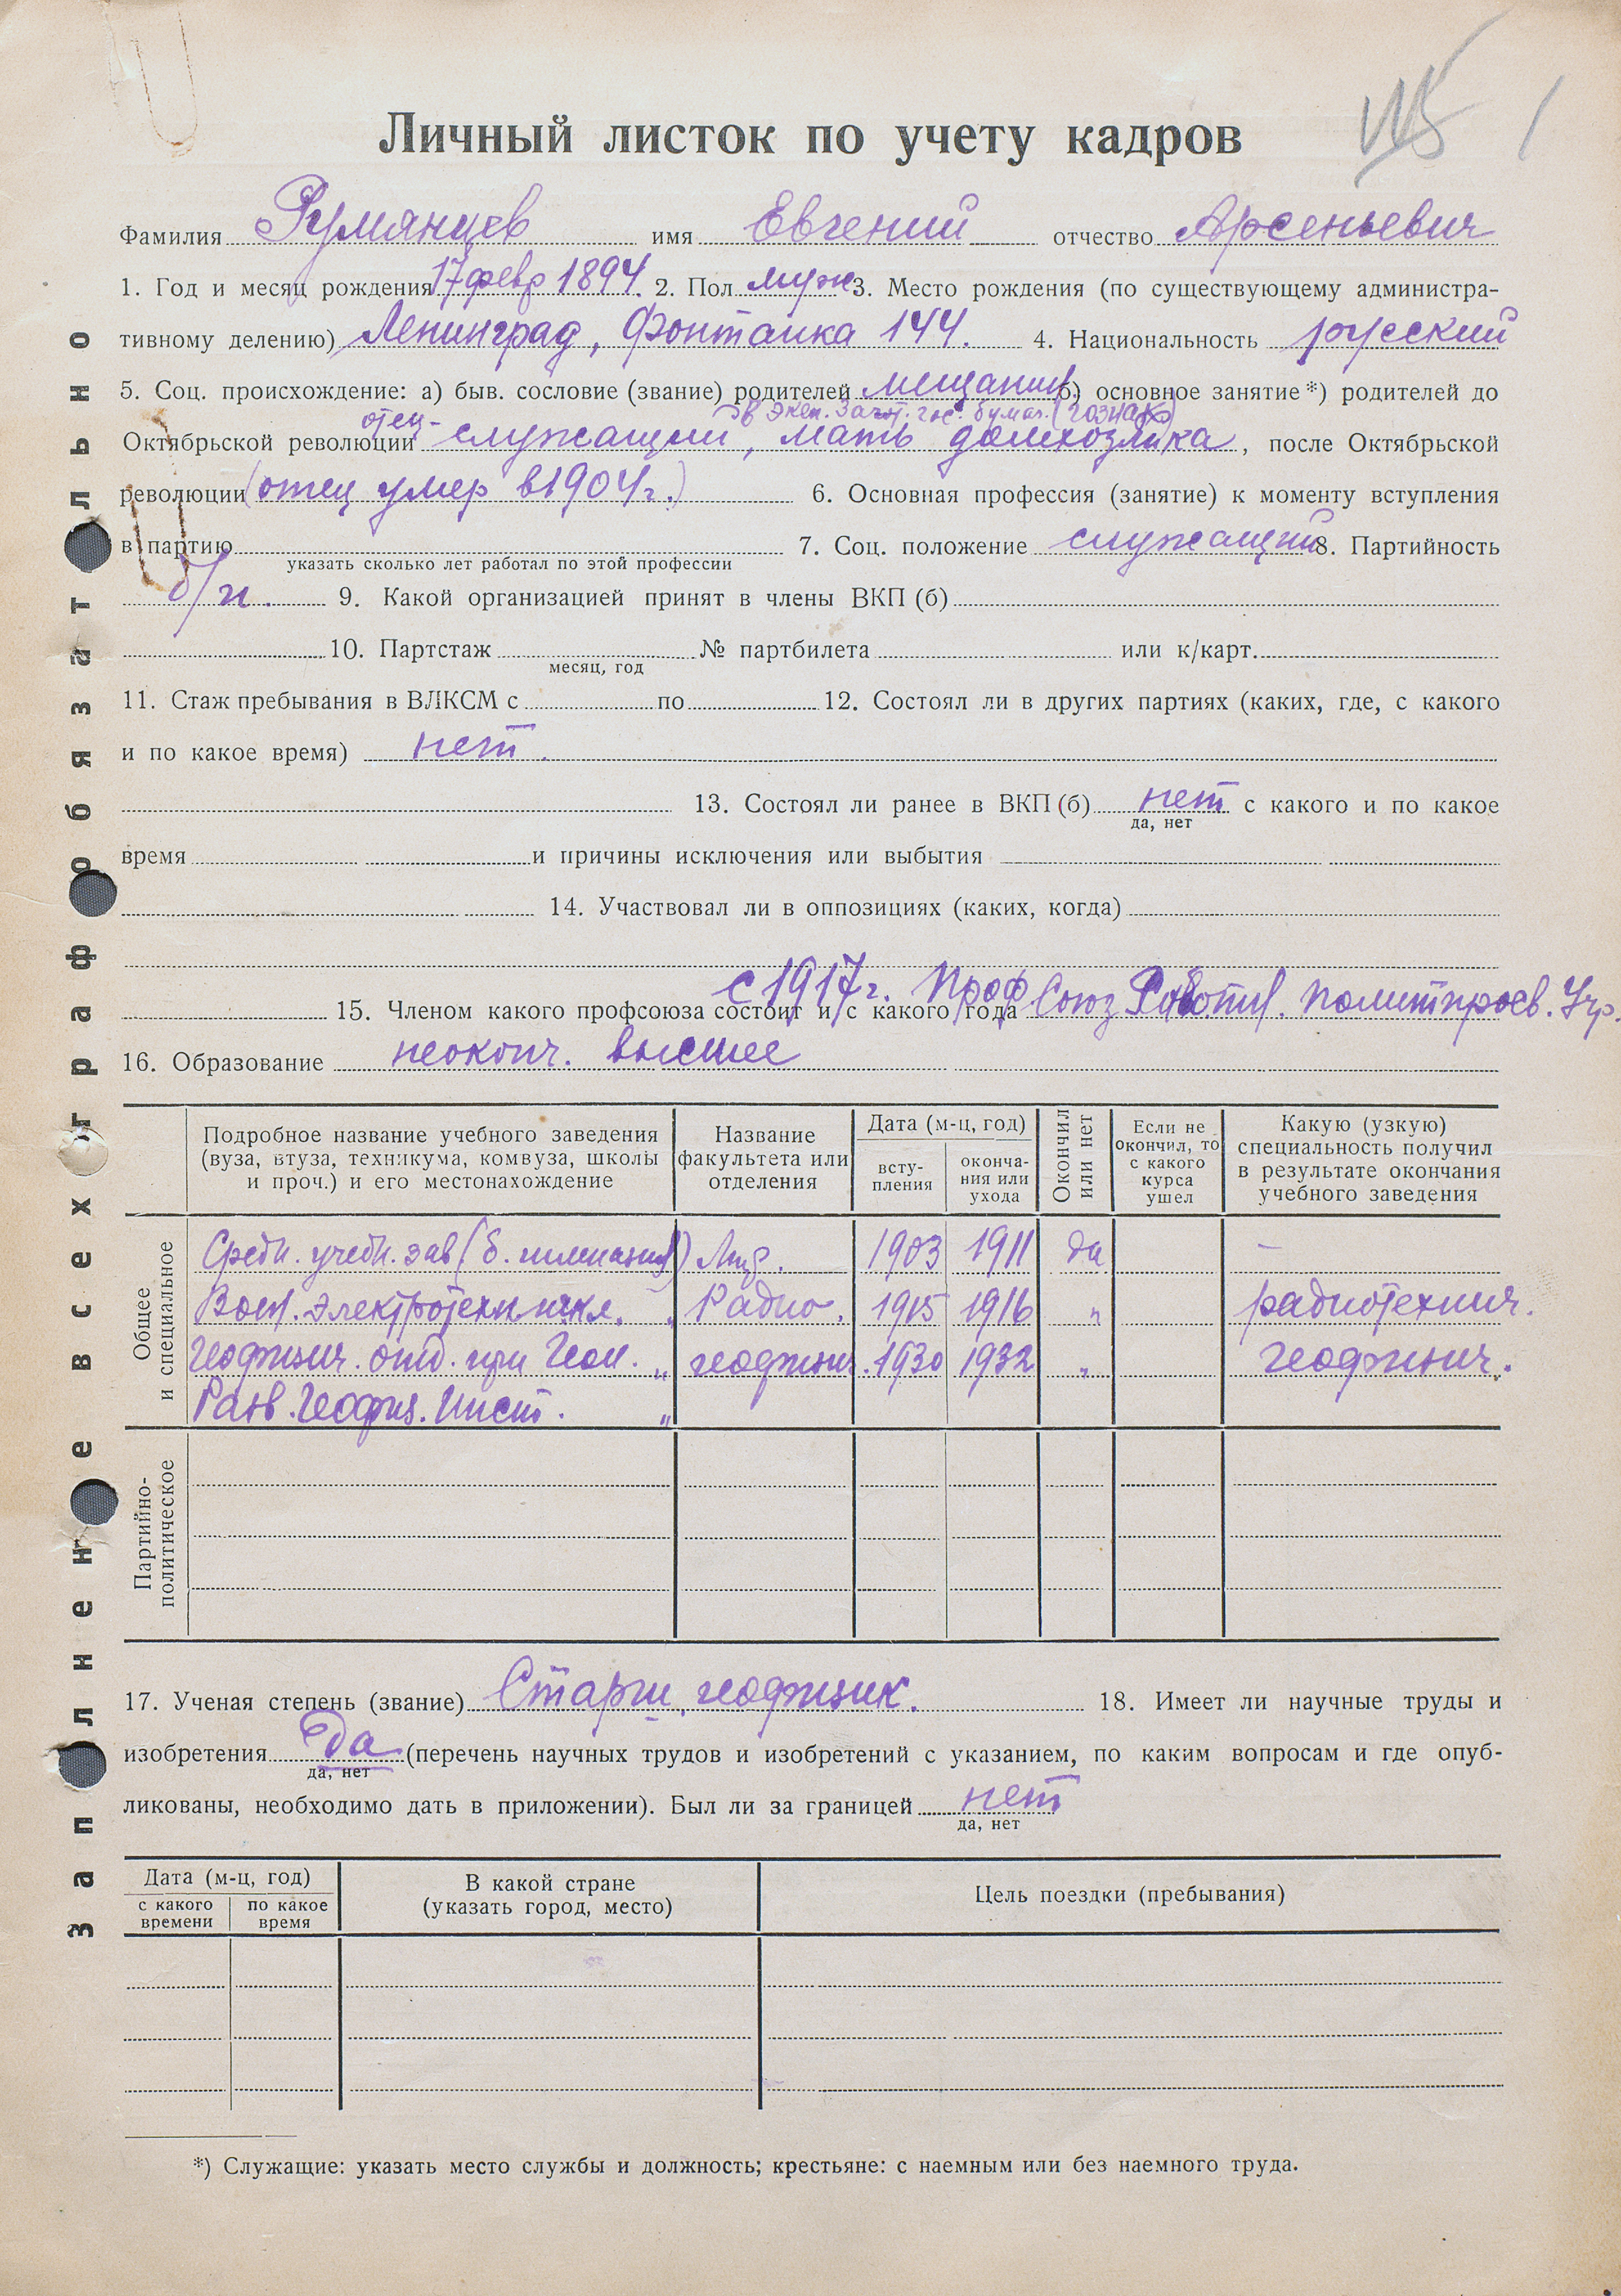 Личный листок по учету кадров
Фамилия Румянцев имя Евгений отчество Арсеньевич
1. Год и месяц рождения 17 февр 1894. 2. Пол муж 3. Место рождения (по существующему администра-
тивному делению) Ленинград, Фонтанка 144. 4. Национальность русский
5. Соц. происхождение: а) быв. сословие (звание) родителей мещанин б) основное занятие *) родителей до
в Эксп. Загот. гос. бумаг. (гознак)
Октябрьской революции отец - служащий, мать домхозяйка, после Октябрьской
революции (отец умер в 1904 г.) 6. Основная профессия (занятие) к моменту вступления
в партию 7. Соц. положение служащий 8. Партийность
указать сколько лет работал по этой профессии
б/п. 9. Какой организацией принят в члены ВКП (б)
10. Партстаж № партбилета или к/карт.
месяц, год
11. Стаж пребывания в ВЛКСМ с по 12. Состоял ли в других партиях (каких, где, с какого
и по какое время) нет.
13. Состоял ли ранее в ВКП (б) нет с какого и по какое
да, нет
время и причины исключения или выбытия
14. Участвовал ли в оппозициях (каких, когда)
15. Членом какого профсоюза состоит и с какого года с 1917 г. Проф Союз Работн. политпросв. Учр.
16. Образование неоконч. высшее
Подробное название учебного заведения (вуза, втуза, техникума, комвуза, школы и проч.) и его местонахождение
Название факультета или отделения
Дата (м-ц, год)
вступления
окончания или ухода
Окончил или нет
Если не окончил, то с какого курса ушел
Какую (узкую) специальность получил в результате окончания учебного заведения
Общее и специальное
Средн. учебн. зав (б. гимназия) 1903 1911 да –
Воен. Электротехн школ. " Радио. 1915 1916 " радиотехнич.
Геофизич. отд. при Геол. " геофизич. 1930 1932 " геофизич.
Разв. Геофиз. Инст. "
Партийно-политическое
17. Ученая степень (звание) Старш. геофизик. 18. Имеет ли научные труды и
изобретения да (перечень научных трудов и изобретений с указанием, по каким вопросам и где опуб-
да, нет
ликованы, необходимо дать в приложении). Был ли за границей нет
да, нет
Дата (м-ц, год)
с какого времени
по какое время
В какой стране (указать город, место)
Цель поездки (пребывания)
*) Служащие: указать место службы и должность; крестьяне: с наемным или без наемного труда.
Заполнение всех граф обязательно